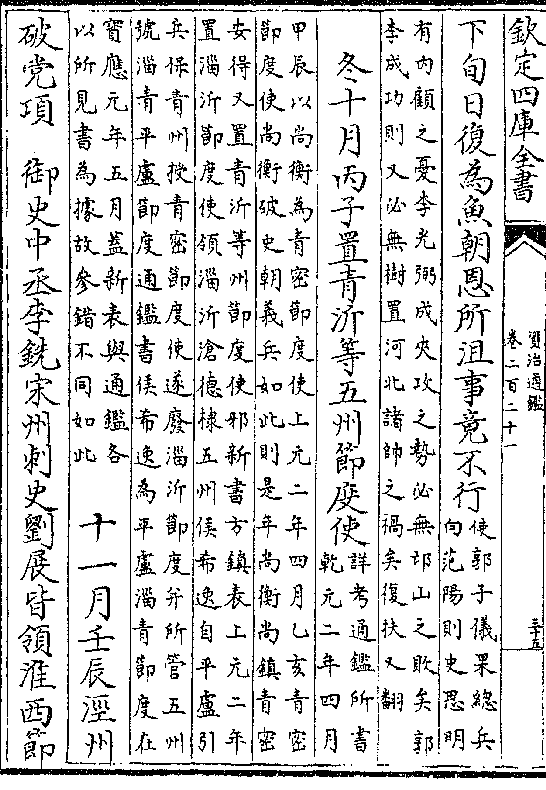 欽定四庫全書
資治通鑑
卷二百二十一
三十五
下旬日復為魚朝恩所沮事竟不行
使郭子儀果總兵
向范陽則史思明
有内顧之憂李光弼成夾攻之勢必無邙山之敗矣郭
李成功則又必無樹置河北諸帥之禍矣復扶又翻
冬十月丙子置青沂等五州節度使
詳考通鑑所書
乾元二年四月
甲辰以尚衡為青密節度使上元二年四月乙亥青密
節度使尚衡破史朝義兵如此則是年尚衡尚鎮青密
安得又置青沂等州節度使邪新書方鎮表上元二年
置淄沂節度使領淄沂滄德棣五州侯希逸自平盧引
兵保青州授青密節度使遂廢淄沂節度并所管五州
號淄青平盧節度通鑑書侯希逸為平盧淄青節度在
寳應元年五月蓋新表與通鑑各
以所見書為據故參錯不同如此
十一月壬辰涇州
破党項 御史中丞李銑宋州刺史劉展皆領淮西節